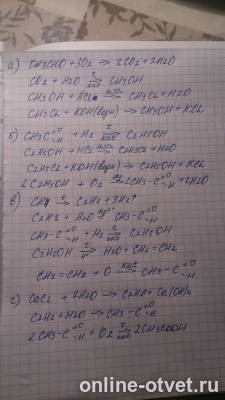 а) CH3CHO + 3O2 → 2CO2 + 2H2O
CO2 + H2O t кат CH3OH
CH3OH + HCl H2SO4 CH3Cl + H2O
CH3Cl + KOH(водн) → CH3OH + KCl
б) CH3C =O -H + H2 t кат C2H5OH
C2H5OH + HCl H2SO4 C2H5Cl + H2O
C2H5Cl + KOH(водн) → C2H5OH + KCl
2C2H5OH + O2 → 2CH3-C =O -H + 2H2O
в) CH4 t → C2H2 + 3H2↑
C2H2 + H2O Hg2+ CH3-C =O -H
CH3-C =O -H + H2 t кат C2H5OH
C2H5OH t → H2O + CH2=CH2
CH2=CH2 + O кат → CH3-C =O -H
г) CaC2 + 2H2O → C2H2 + Ca(OH)2
C2H2 + H2O → CH3-C =O -H
2CH3-C =O -H + O2 t кат 2CH3COOH
online-otvet.ru